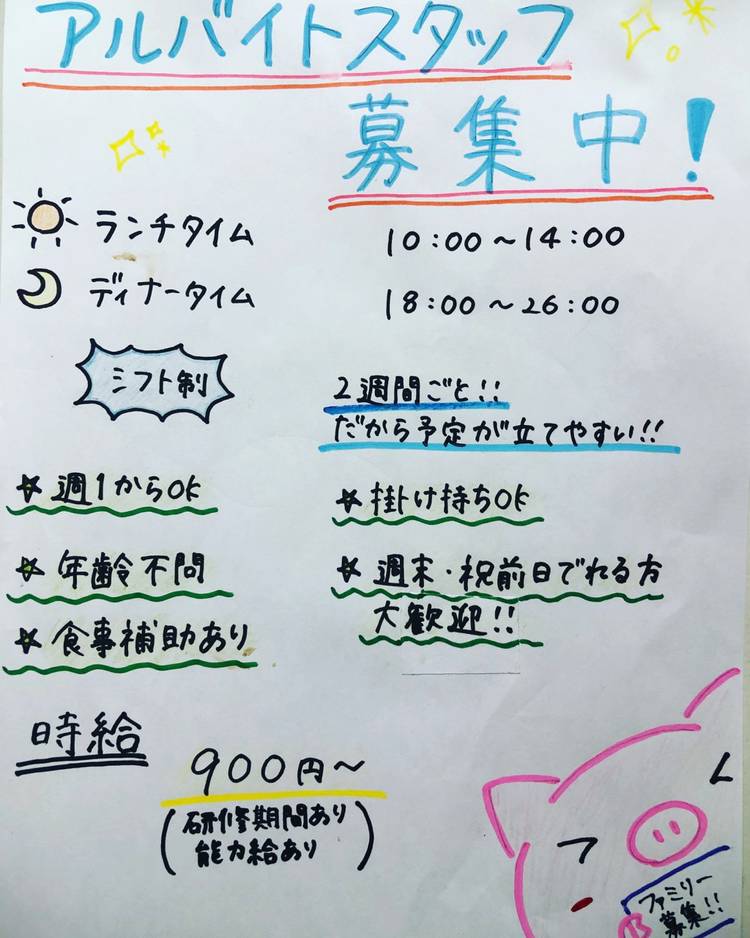 アルバイトスタッフ
募集中!
ランチタイム 10:00～14:00
ディナータイム 18:00～26:00
シフト制
2週間ごと!!
だから予定が立てやすい!!
☆週1からOK
☆掛け持ちOK
☆年齢不問
☆週末・祝前日でれる方
大歓迎!!
☆食事補助あり
時給
900円～
(研修期間あり
能力給あり)
ファミリー
募集!!